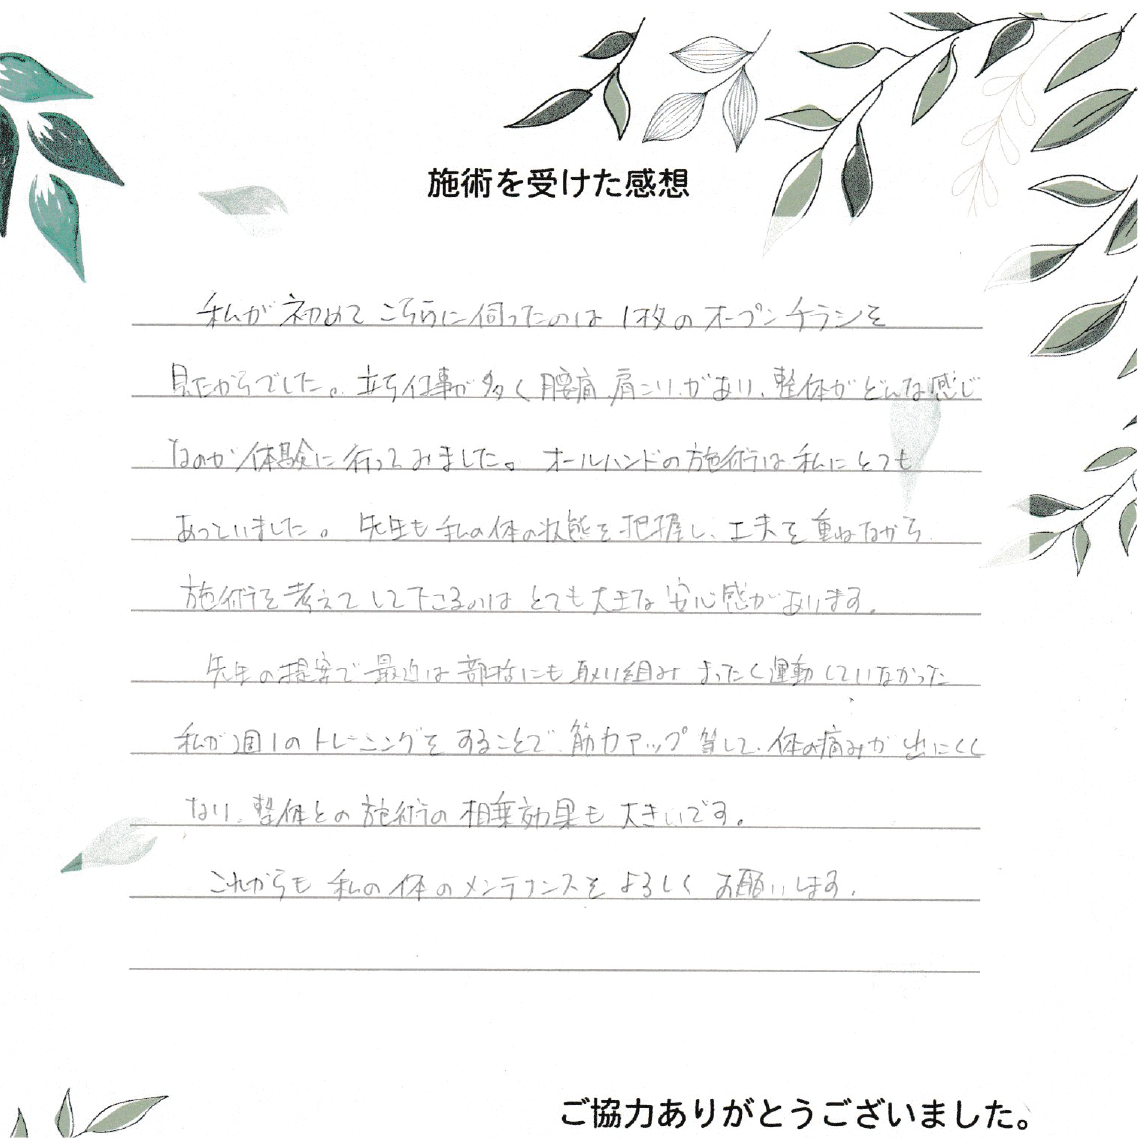 施術を受けた感想
私が初めてこちらに伺ったのは1枚のオープンチラシを
見たからでした。立ち仕事が多く腰痛、肩こりがあり、整体がどんな感じ
なのか体験に行ってみました。オールハンドの施術は私にとても
あっていました。先生も私の体の状態を把握し、工夫を重ねながら
施術を考えてして下さるのはとても大きな安心感があります。
先生の提案で最近は部活にも取り組みまったく運動していなかった
私が週1のトレーニングをすることで筋力アップ等して、体の痛みが出にくく
なり、整体との施術の相乗効果も大きいです。
これからも私の体のメンテナンスをよろしくお願いします。
ご協力ありがとうございました。